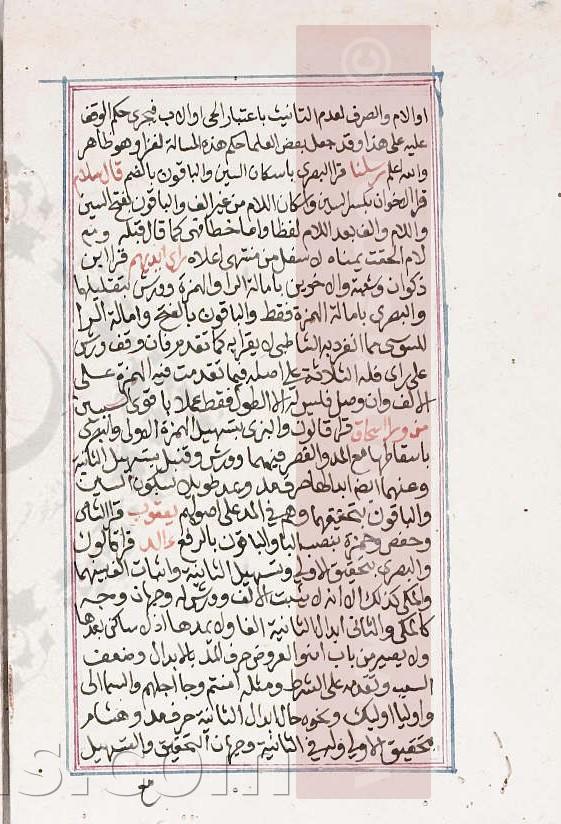 او الام والصرف لعدم التانيث باعتبار الحي او الاب فيجري حكم الوقف
عليه على هذا وقد جعل بعض العلما حكم هذه المسالة لغزا وهو ظاهر
والله اعلم رسلنا قرا البصري باسكان السين والباقون بالضم قال سلام
قرا الاخوان بكسر السين واسكان اللام من غير الف والباقون بفتح السين
واللام والف بعد اللام لفظا واما خطا فهي كما قال قبله
لام الحقت يمناه لاسفل من منتهى اعلاه راى ايديهم قرا ابن
ذكوان وشعبة والاخوين بامالة الرا والهمزة وورش بتقليلهما
والبصري بامالة الهمزة فقط والباقون بالفتح وامالة الرا
للسوسي مما انفرد به الشاطبي لا يقرا به كما تقدم فان وقف ورش
على راى فله الثلاثة على اصله فيما تقدمت فيه الهمزة على
الالف وان وصل فليس له الا الطول فقط عملا باقوى السببين
من ورا اسحاق قرا قالون والبزي بتسهيل الهمزة الاولى والبصري
باسقاطها مع المد والقصر فيهما وورش وقنبل بتسهيل الثانية
وعنهما ايضا ابدالها حرف مد ويمد طويلا لسكون السين
والباقون بتحقيقهما وهم في المد على اصولهم يعقوب قرا الشامي
وحفص وحمزة بنصب البا والباقون بالرفع ءالد قرا قالون
والبصري بتحقيق الاولى وتسهيل الثانية واثبات الف بينهما
والمكي كذلك الا انه لا يثبت الالف وورش له وجهان وجه
كالمكي والثاني ابدال الثانية الفا ولا يمدها اذ لا ساكن بعدها
ولا يصير من باب امنوا لعروض حرف المد بالابدال وضعف
السبب وتقدمه على الشرط ومثله ءامنتم وجا اجلهم والسما الى
واوليا اوليك ونحوه حال ابدال الثانية حرف مد وهشام
بتحقيق الاولى وله في الثانية وجهان التحقيق والتسهيل
مع